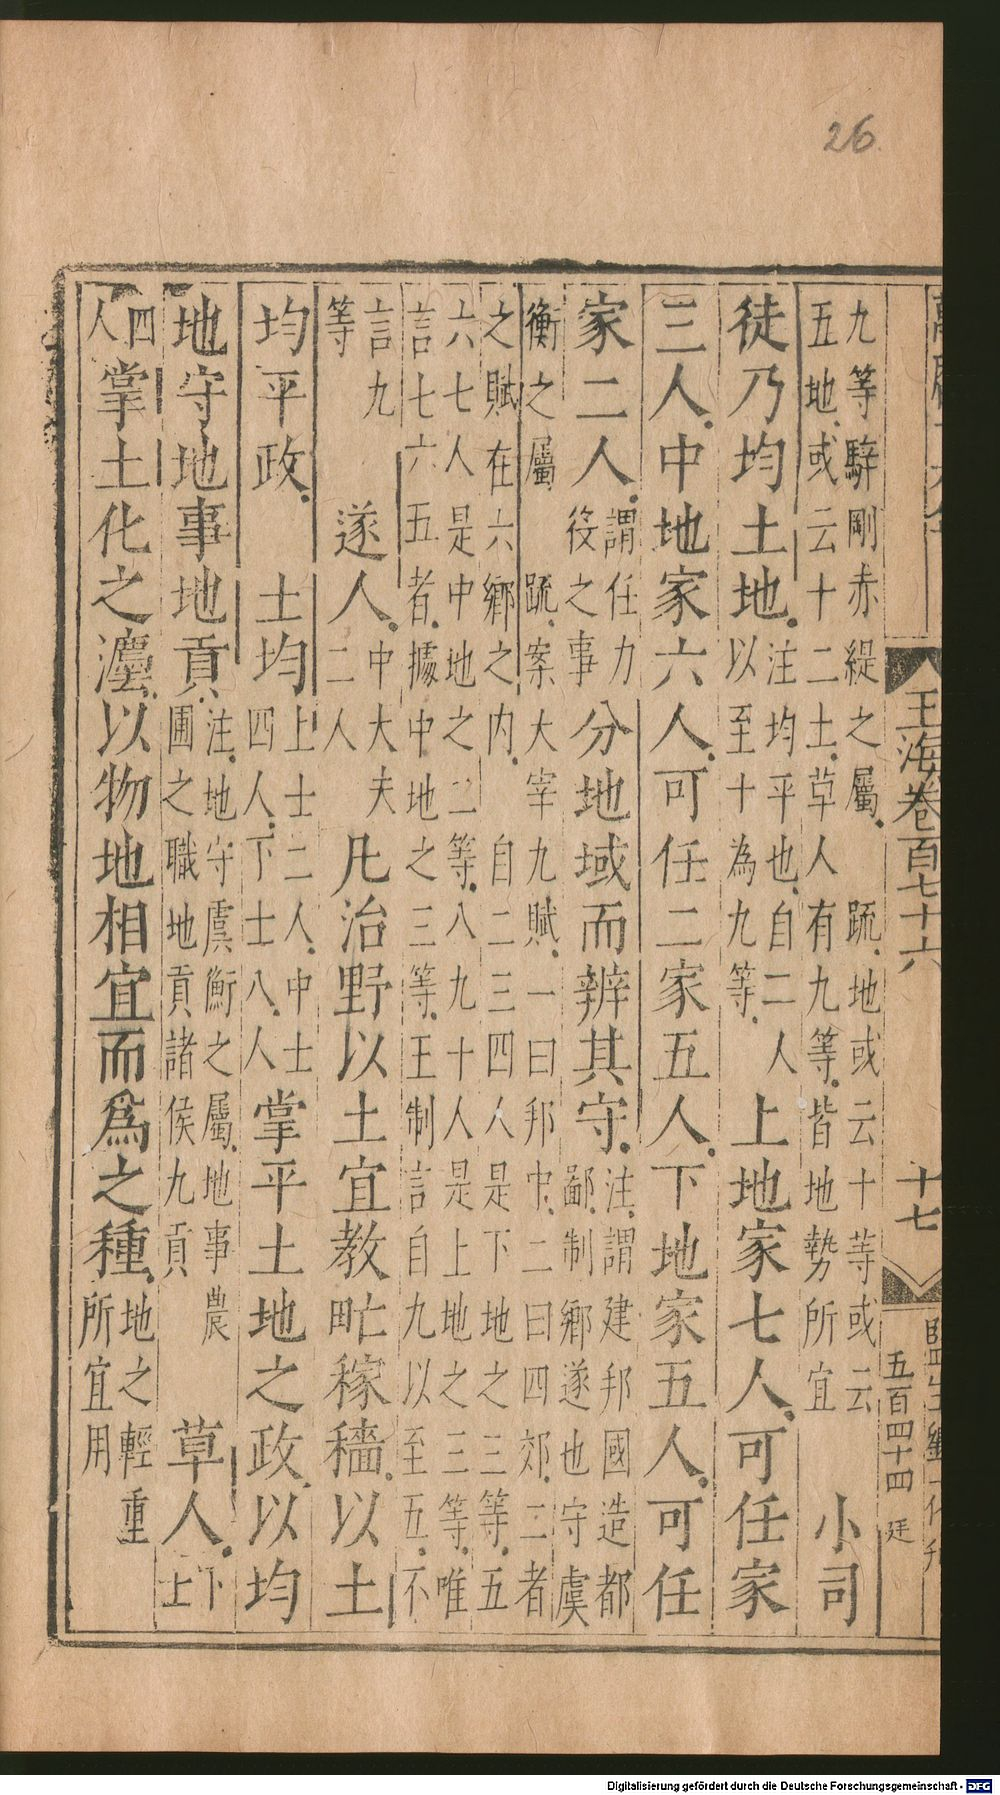 26
玉海卷百七十六
十七
五百四十四 廷
九等騂剛赤緹之屬疏地或云十等或云
五地或云十二土草人有九等皆地勢所宜
小司
徒乃均土地
注均平也自二人
以至十為九等
上地家七人可任家
三人中地家六人可任二家五人下地家五人可任
家二人
謂任力
役之事
分地域而辨其守
注謂建邦國造都
鄙制鄉遂也守虞
衡之屬 疏案大宰九賦一曰邦中二曰四郊二者
之賦在六鄉之內自二三四人是下地之三等五
六七人是中地之二等八九十人是上地之三等唯
言七六五者據中地之三等王制言自九以至五不
言九
等
遂人
中大夫
二人
凡治野以土宜教甿稼穡以土
均平政 土均
上士二人中士
四人下士八人
掌平土地之政以均
地守地事地貢
注地守虞衡之屬地事農
圃之職地貢諸侯九貢
草人
下
士
四
人
掌土化之灋以物地相宜而爲之種
地之輕重
所宜用
Digitalisierung gefördert durch die Deutsche Forschungsgemeinschaft - DFG